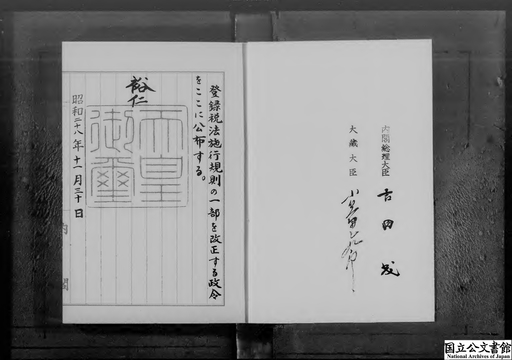 登録税法施行規則の一部を改正する政令
をここに公布する。
裕仁
天皇
御璽
昭和二十八年十一月三十日
内閣
内閣総理大臣 吉田茂
大蔵大臣 小笠原三九郎
国立公文書館
National Archives of Japan